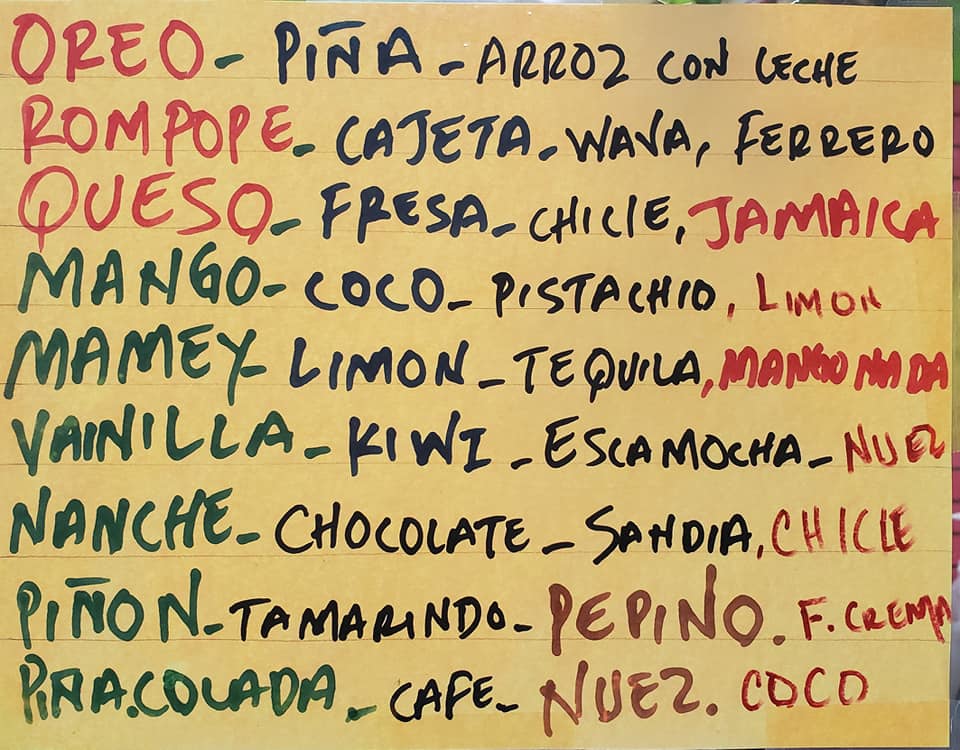 OREO - PIÑA - ARROZ CON LECHE
ROMPOPE - CAJETA - WAVA, FERRERO
QUESO - FRESA - CHICLE, JAMAICA
MANGO - COCO - PISTACHIO, LIMON
MAMEY - LIMON - TEQUILA, MANGONADA
VAINILLA - KIWI - ESCAMOCHA - NUEZ
NANCHE - CHOCOLATE - SANDIA, CHICLE
PIÑON - TAMARINDO - PEPINO. F. CREMA
PIÑA.COLADA - CAFE - NUEZ. COCO